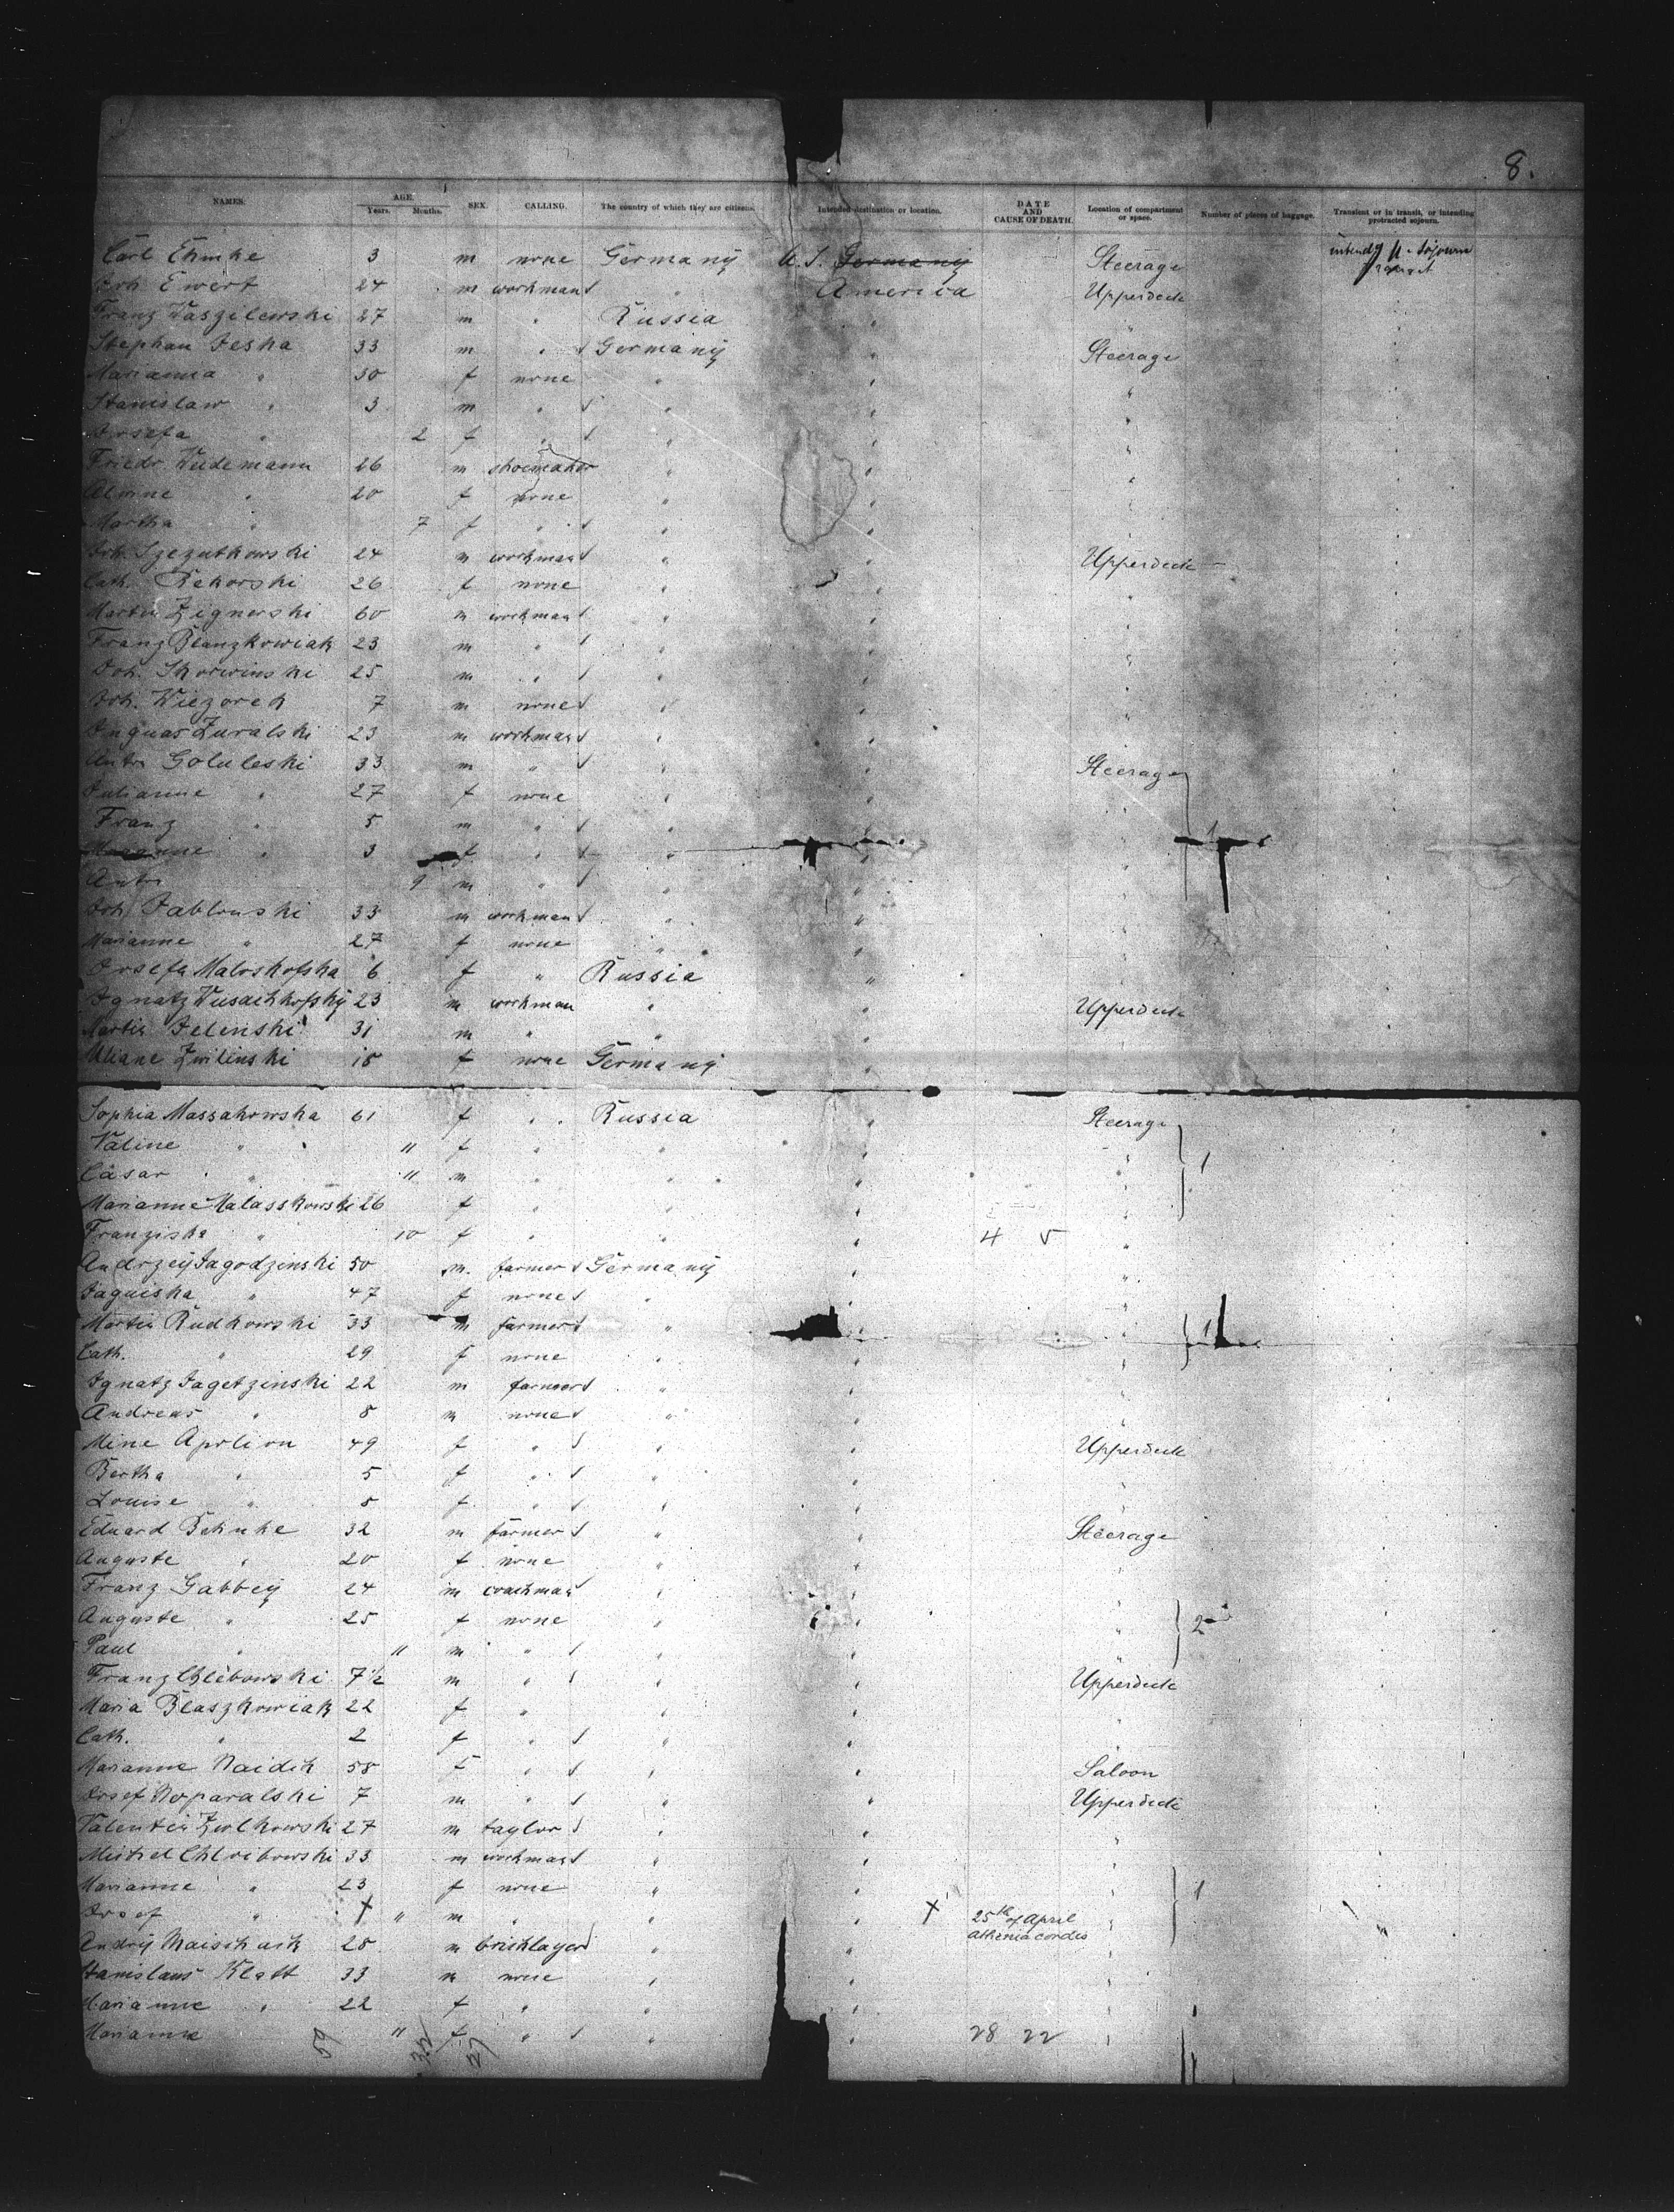 8.
NAMES. AGE. Years. Months. SEX. CALLING. The country of which they are citizens. Intended destination or location. DATE AND CAUSE OF DEATH. Location of compartment or space. Number of pieces of baggage. Transient or in transit, or intending protracted sojourn.
Carl Ehmke 3 m none Germany U.S. Germany Steerage
Joh. Ewert 24 m workman " America Upperdeck
Franz Waszilewski 27 m " Russia " "
Stephan Jeska 33 m " Germany " Steerage
Marianna " 30 f none " " "
Stanislaw " 3 m " " " "
Josefa " 2 f " " " "
Friedr. Wiedemann 26 m shoemaker " " "
Alwine " 20 f none " " "
Martha " 7 f " " " "
Joh. Szezutkowski 24 m workman " " Upperdeck
Cath. Rekorski 26 f none " " "
Martin Zignerski 60 m workman " " "
Franz Blanzkowiak 23 m " " " "
Joh. Skorwinski 25 m " " " "
Joh. Wiezorek 7 m none " " "
Zuralski 23 m workman " " "
Anton Goluleski 33 m " " " Steerage
Julianne " 27 f none " " "
Franz " 5 m " " " " 1
Marianne " 3 f " " " "
Anton 9 m " " " "
Joh. Jablonski 33 m workman " " "
Marianne " 27 f none " " "
Josefa Maloskofska 6 f " Russia " "
Ignatz 23 m workman " " Upperdeck
Martin Jelinski 31 m " " " "
Zwilinski 18 f none Germany "
Sophia Massakowska 61 f " Russia " Steerage
Valine " 11 f " " " "
Cäsar " 11 m " " " " 1
Marianne Malasskowski 26 f " " " "
Franziska " 10 f " " " 4 5 "
Andrzeij Jagodzinski 50 m. farmer Germany " "
Jaguiska " 47 f none " " "
Martin Rudkowski 33 m farmer " " " 1
Cath. " 29 f none " " "
Ignatz Jagetzinski 22 m farmer " " "
Andreas " 8 m none " " "
Mine Aprlion 49 f " " " Upperdeck
Bertha " 5 f " " " "
Louise " 8 f " " " "
Eduard Behnke 32 m farmer " " Steerage
Auguste " 20 f none " " "
Franz Gabbeij 24 m coachman " " "
Auguste " 25 f none " " " 2
Paul " 11 m " " " "
Franz Chlebowski 7½ m " " " Upperdeck
Maria Blaszkowiak 22 f " " " "
Cath. " 2 f " " " "
Marianne Naidik 58 f " " " Saloon
Josef Noparalski 7 m " " " Upperdeck
Valentin Zwolkowski 27 m taylor " " "
Michel Chloibowski 33 m workman " " "
Marianne " 23 f none " " " 1
Josef " † 11 m " " " † 25th of April "
cordis
Andrij 28 m bricklayer " " "
Stanislaus Klatt 33 m none " " "
Marianne " 22 f " " " "
Marianne 11 f " " " 28 22 "
59 32 27